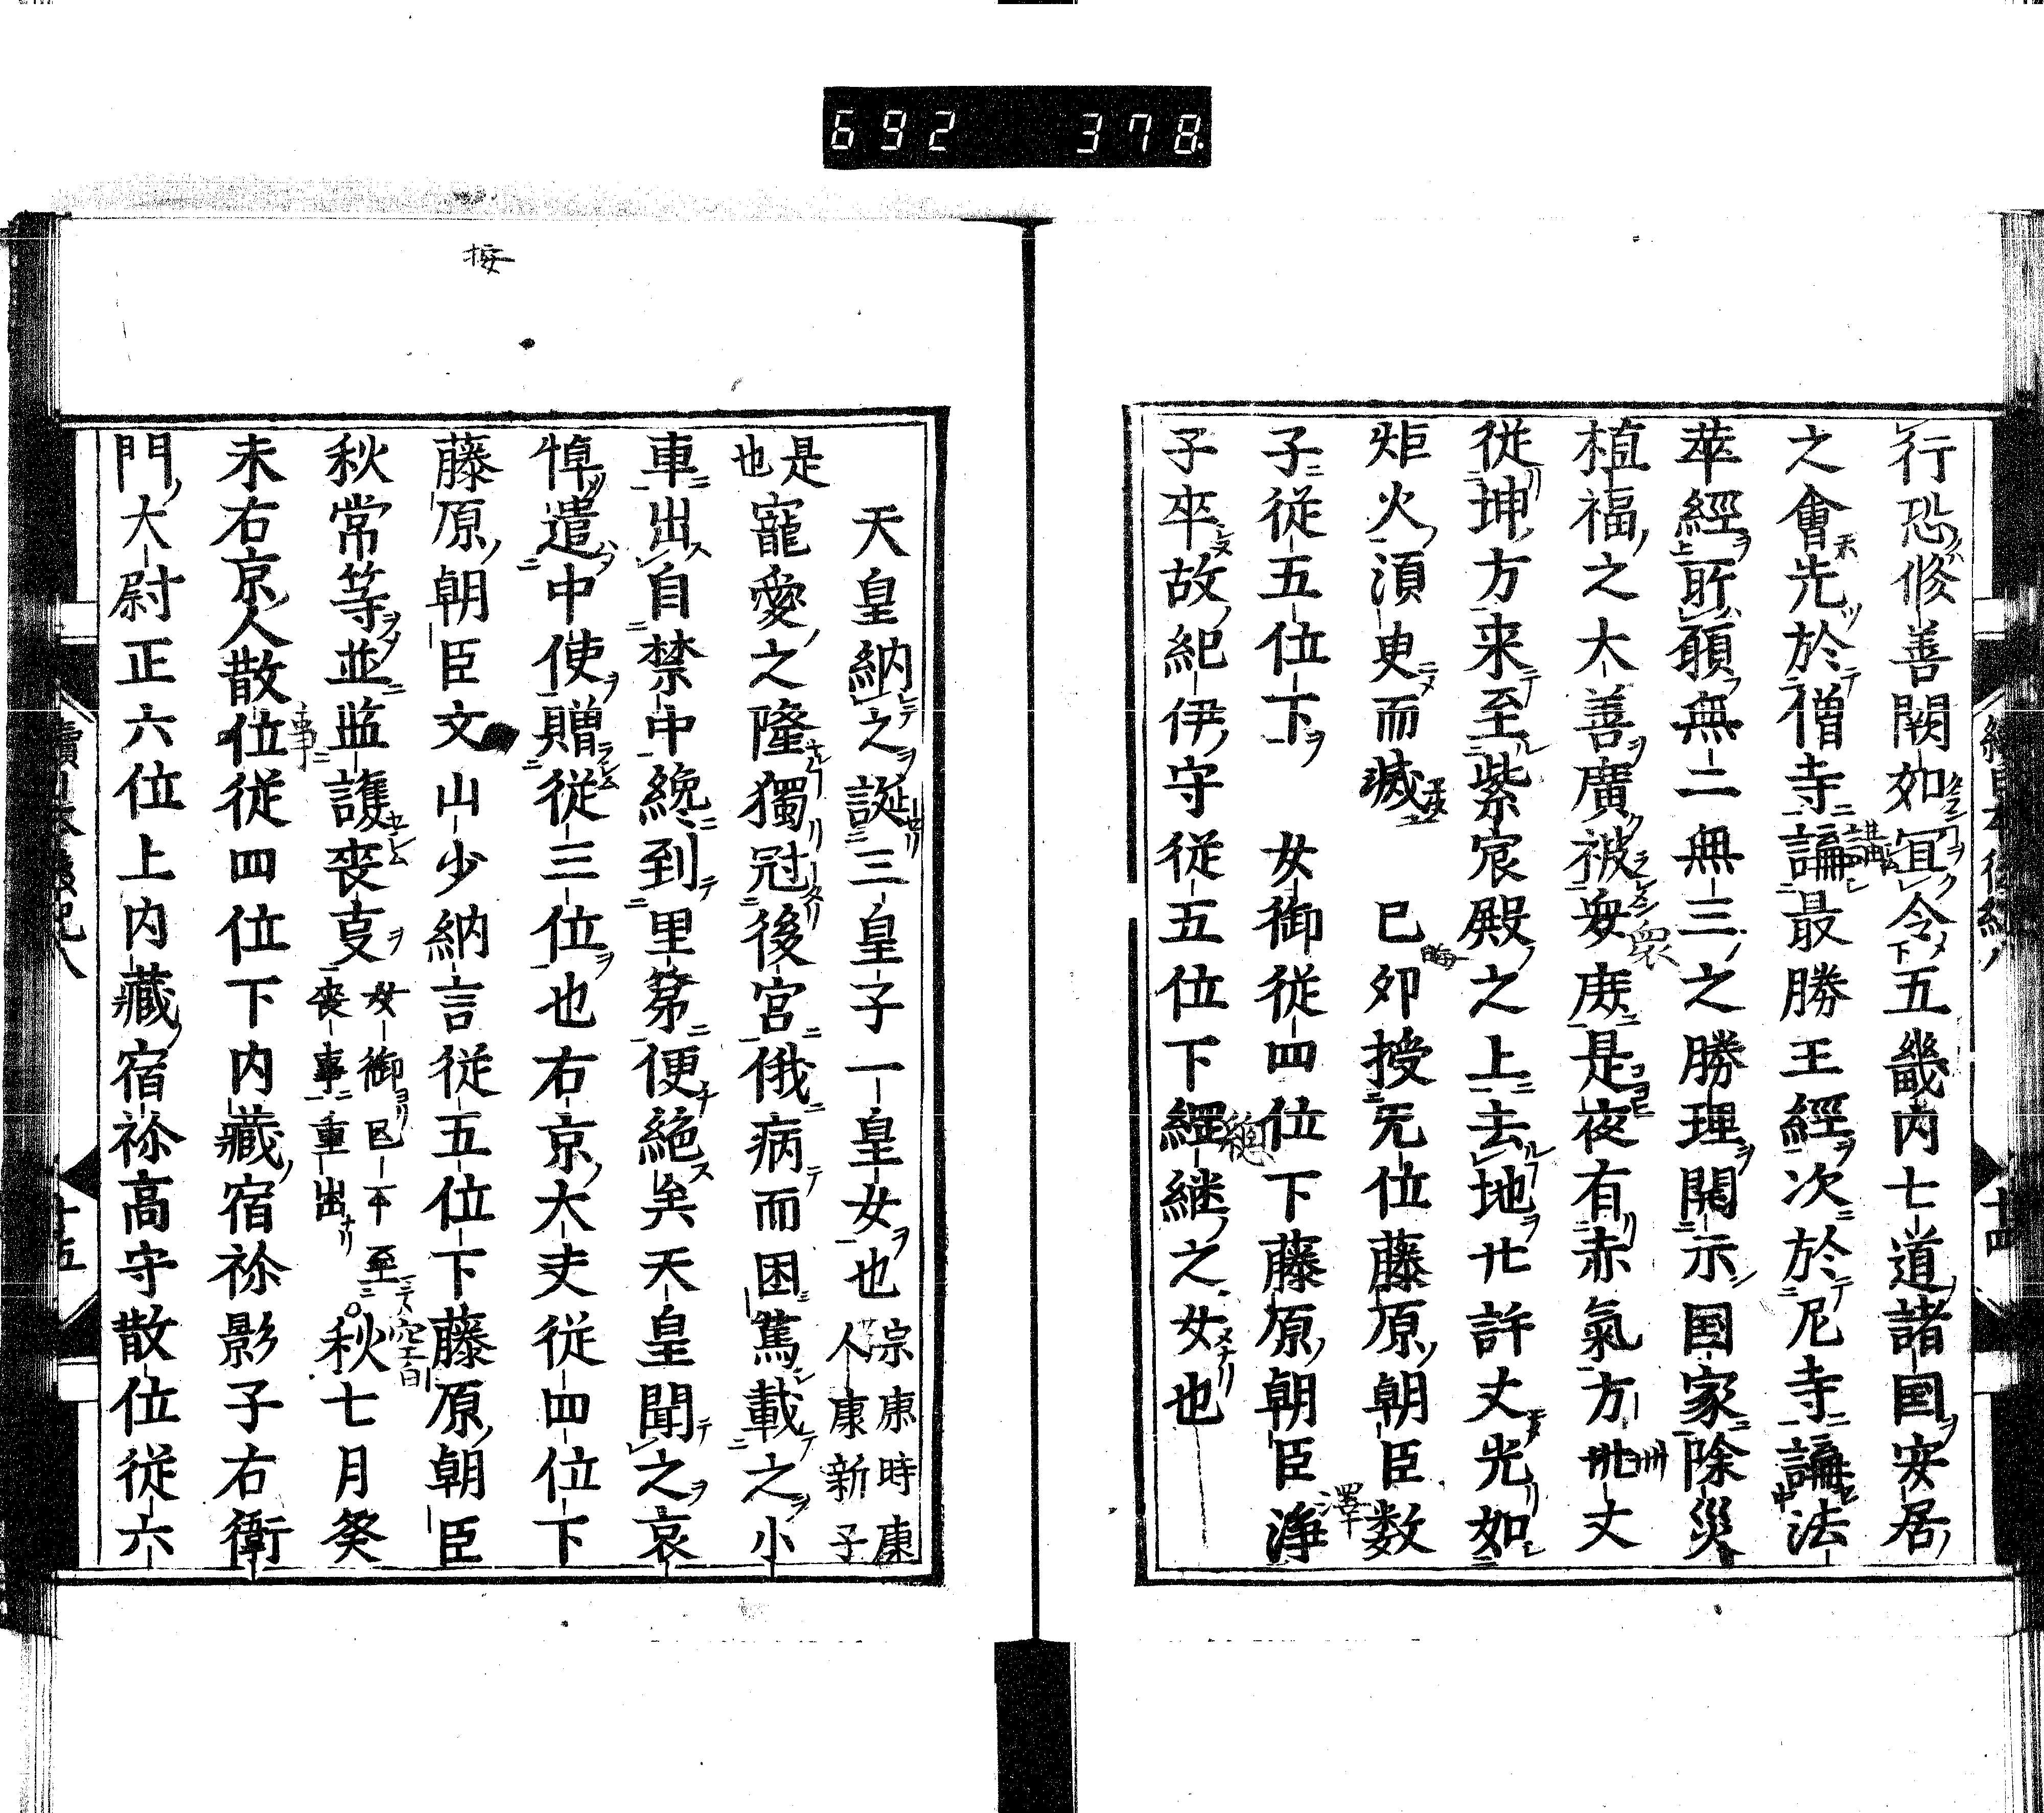 692 378
行恐修善闕如冝令五畿内七道諸国安居
之會先於僧寺講最勝王經次於尼寺講法
華經所願無二無三之勝理開示国家除災
植福之大善廣被衆庶是夜有赤氣方卌丈
従坤方来至紫宸殿之上去地廿許丈光如
炬火須臾而滅 已卯授无位藤原朝臣数
子従五位下 女御従四位下藤原朝臣澤
子卒故紀伊守従五位下總継之女也
天皇納之誕三皇子一皇女也 宗康時康
人康新子
是
也 寵愛之隆獨冠後宮俄病而困篤載之小
車出自禁中纔到里第便絶矣天皇聞之哀
悼遣中使贈従三位也右京大夫従四位下
藤原朝臣文山少納言従五位下藤原朝臣
秋常等並監護喪事 女御已下至
喪事重出 秋七月癸
未右京人散位従四位下内藏宿祢影子右衛
門大尉正六位上内藏宿祢高守散位従六
按
十四
十五